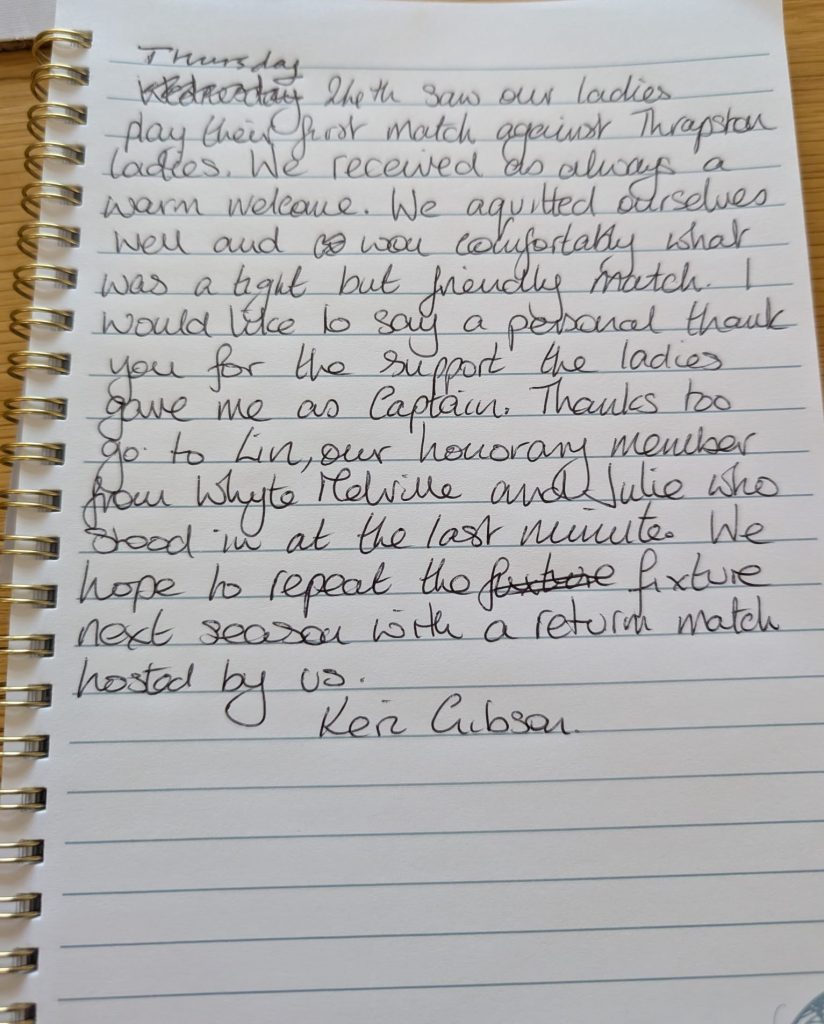 Thursday
Wednesday 24th saw our ladies
play their first match against Thrapston
ladies. We received as always a
warm welcome. We aquitted ourselves
well and won comfortably what
was a tight but friendly match. I
would like to say a personal thank
you for the support the ladies
gave me as Captain. Thanks too
go to Lin, our honorary member
from Whyte Melville and Julie who
stood in at the last minute. We
hope to repeat the fixture fixture
next season with a return match
hosted by us.
Gibson.